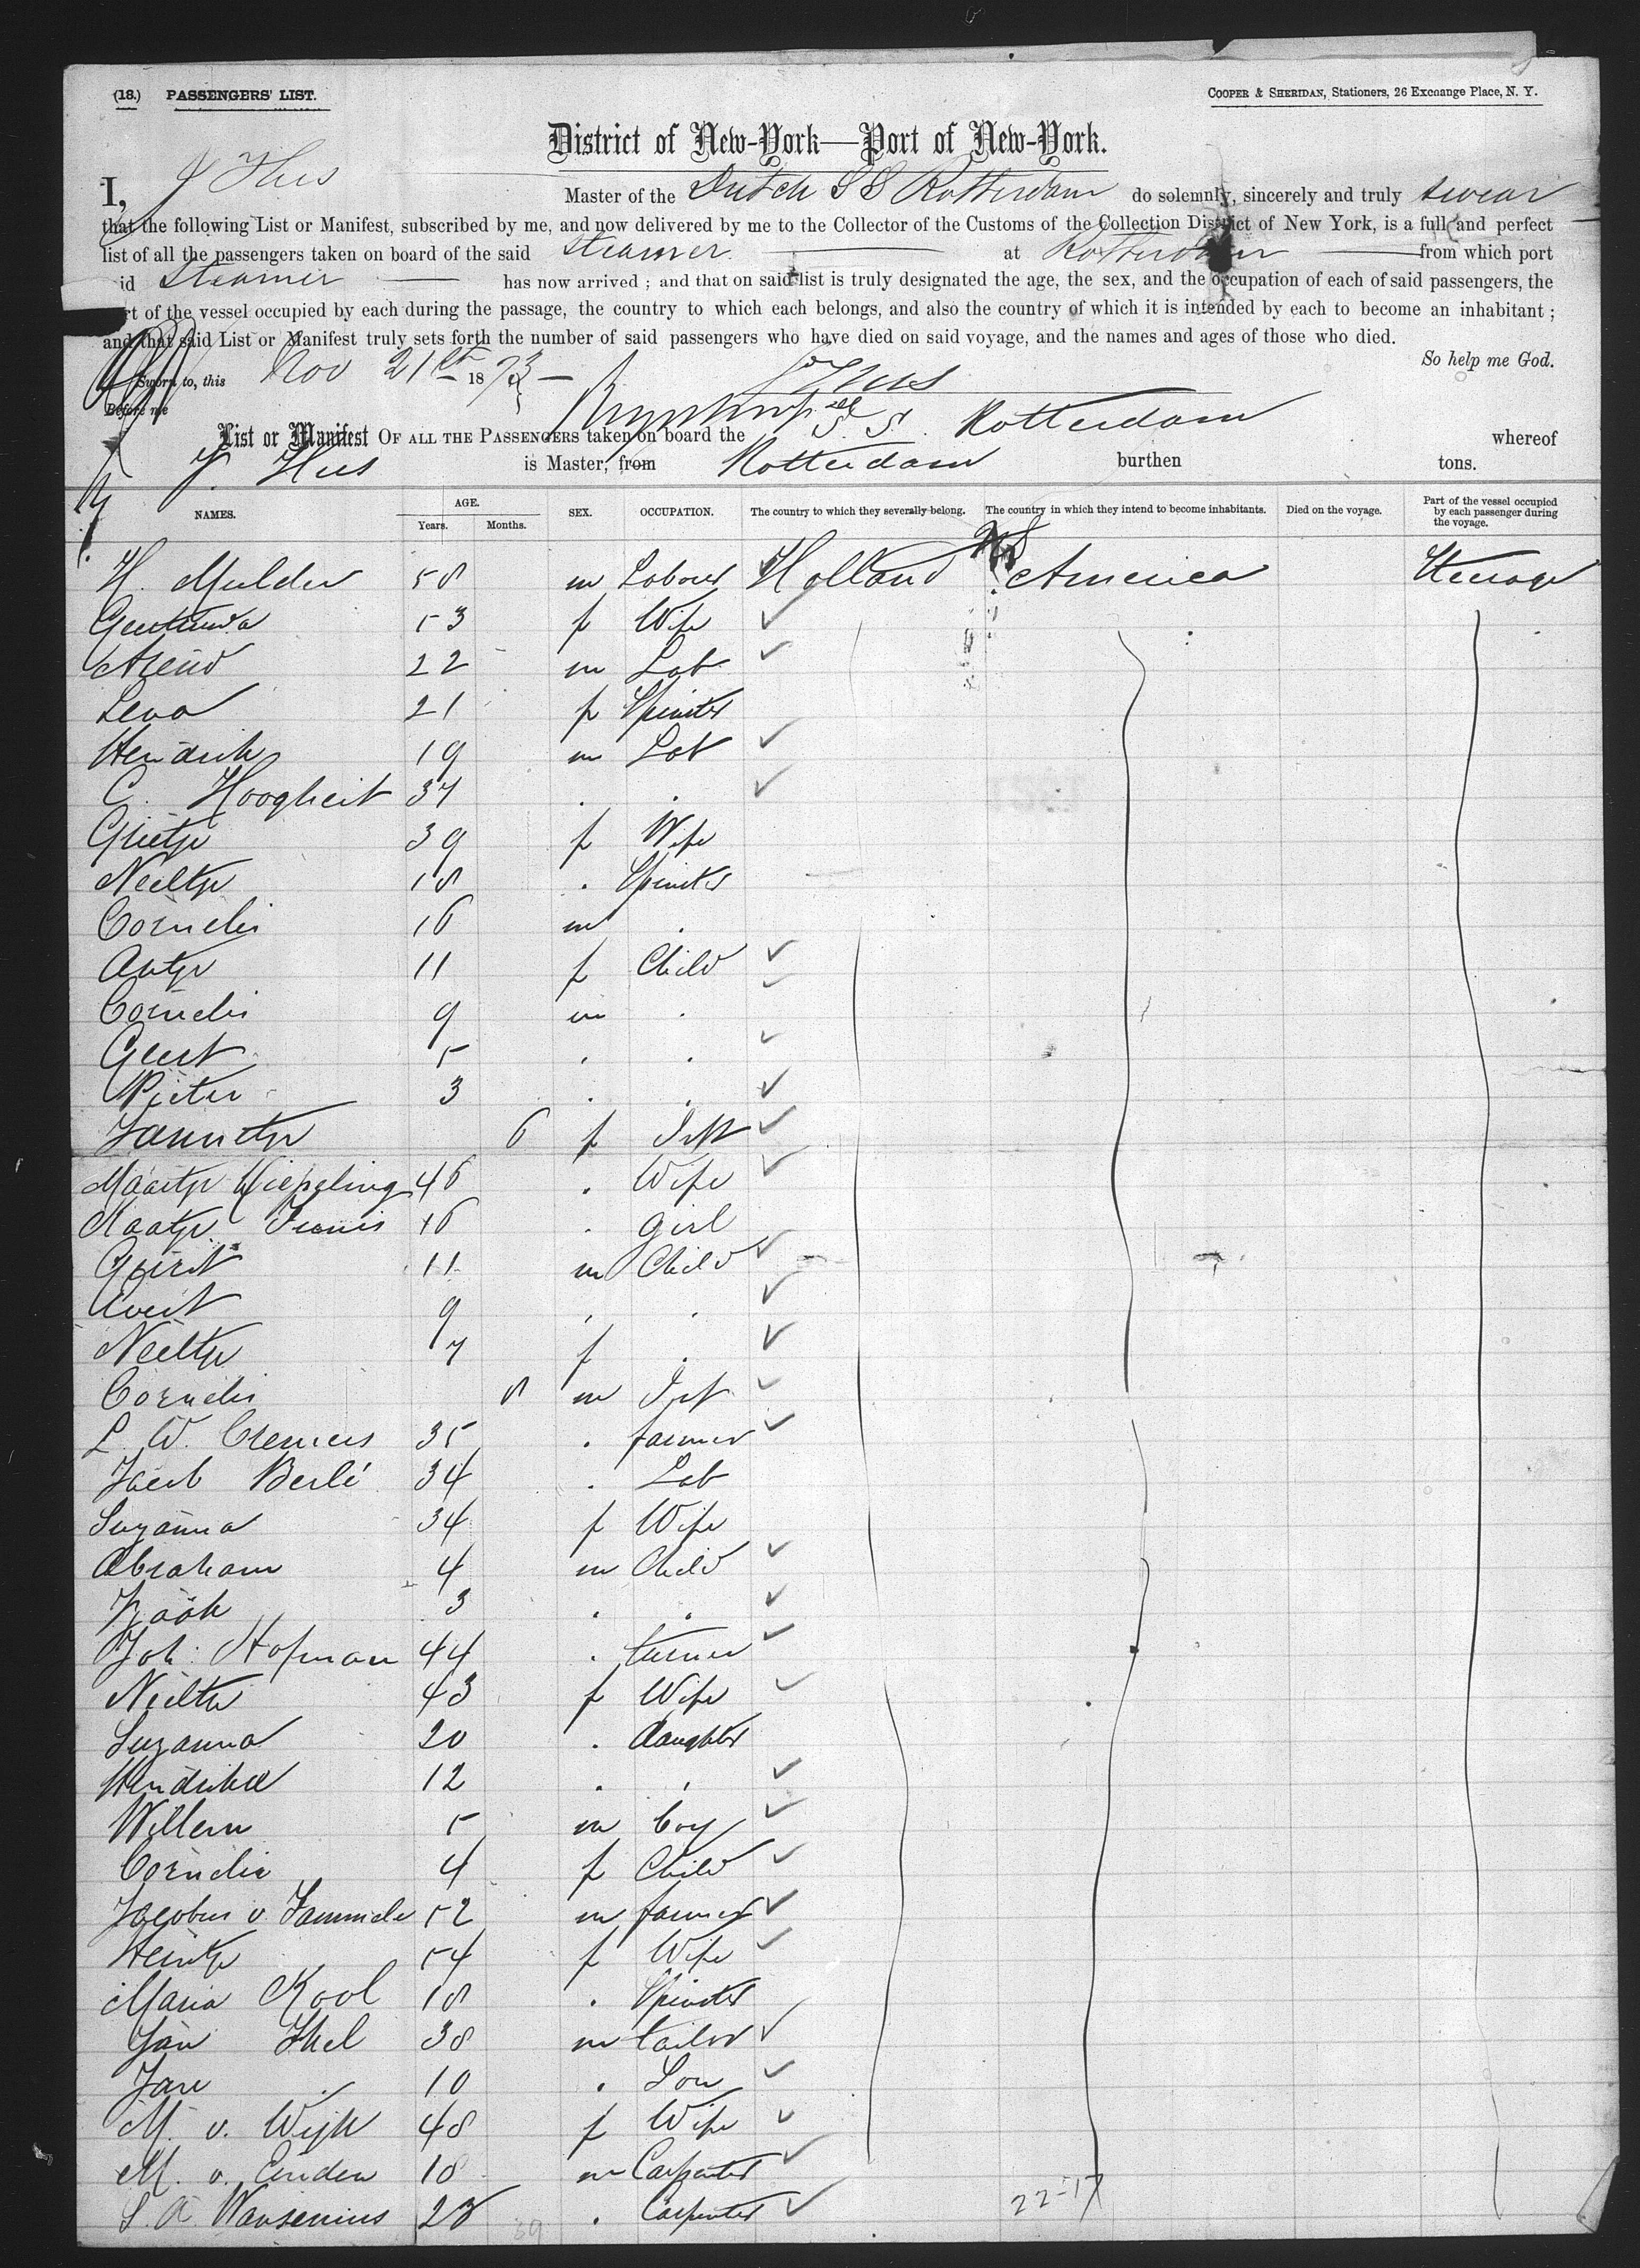 (18.) PASSENGERS' LIST.
COOPER & SHERIDAN, Stationers, 26 Exchange Place, N. Y.
District of New-York—Port of New-York.
I, J Hus Master of the Dutch S S Rotterdam do solemnly, sincerely and truly swear
that the following List or Manifest, subscribed by me, and now delivered by me to the Collector of the Customs of the Collection District of New York, is a full and perfect
list of all the passengers taken on board of the said Steamer at Rotterdam from which port
id Steamer has now arrived ; and that on said list is truly designated the age, the sex, and the occupation of each of said passengers, the
rt of the vessel occupied by each during the passage, the country to which each belongs, and also the country of which it is intended by each to become an inhabitant ;
and that said List or Manifest truly sets forth the number of said passengers who have died on said voyage, and the names and ages of those who died.
So help me God.
Sworn to, this Nov 21st 1873 J Hus
Before me
List or Manifest OF ALL THE PASSENGERS taken on board the S. S. Rotterdam whereof
J. Hus is Master, from Rotterdam burthen tons.
NAMES. AGE. Years. Months. SEX. OCCUPATION. The country to which they severally belong. The country in which they intend to become inhabitants. Died on the voyage. Part of the vessel occupied by each passenger during the voyage.
H. Mulder 58 m Labour Holland America Steerage
53 f Wife
Arend 22 m Lab
Lena 21 f Spinster
Hendrik 19 m Lab
C. Hoogheit 37 . .
Grietje 39 f Wife
Neeltje 18 . Spinster
Cornelis 16 m .
Antje 11 f Child
Cornelis 9 m .
Geert 5 . .
Pieter 3 . .
Jannetje 6 f Inft
Maartje 46 . Wife
Maatje Teunis 16 . girl
Gerrit 11 m Child
Evert 9 . .
Neeltje 7 f .
Cornelis 8 m Inft
L. W. Cremers 35 . farmer
Jacob Berlé 34 . Lab
Suzanna 34 f Wife
Abraham 4 m Child
Izaäk 3 . .
Joh: Hofman 44 . turner
Neeltje 43 f Wife
Suzanna 20 . daughter
Hendrika 12 . .
Willem 5 m boy
Cornelia 4 f Child
Jacobus v. Tammele 52 m farmer
54 f Wife
Maria Kool 18 . Spinster
Jan 38 m tailor
Jan 10 . Son
M. v. Wijk 48 f Wife
M. v. Emden 18 m Carpenter
L. A. Wansenius 23 . Carpenter
22-17
39